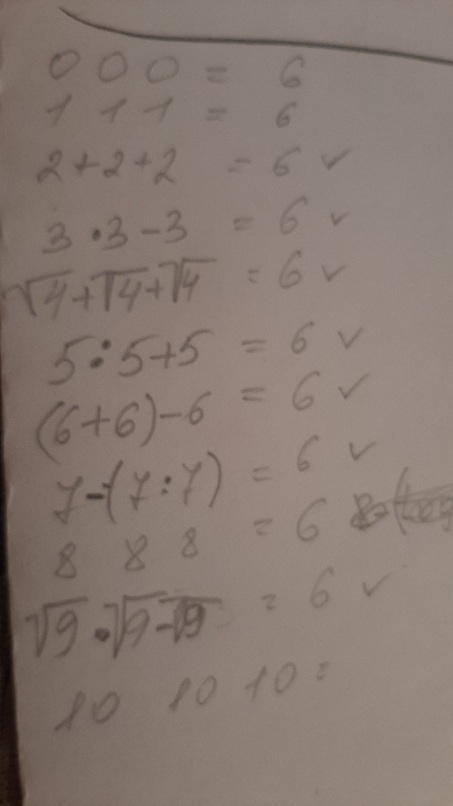 0 0 0 = 6
1 1 1 = 6
2+2+2 = 6 ✓
3 · 3 - 3 = 6 ✓
√4+√4+√4 = 6 ✓
5 : 5+5 = 6 ✓
(6+6)-6 = 6 ✓
7-(7:7) = 6 ✓
8 8 8 = 6
√9 · √9-√9 = 6 ✓
10 10 10 =